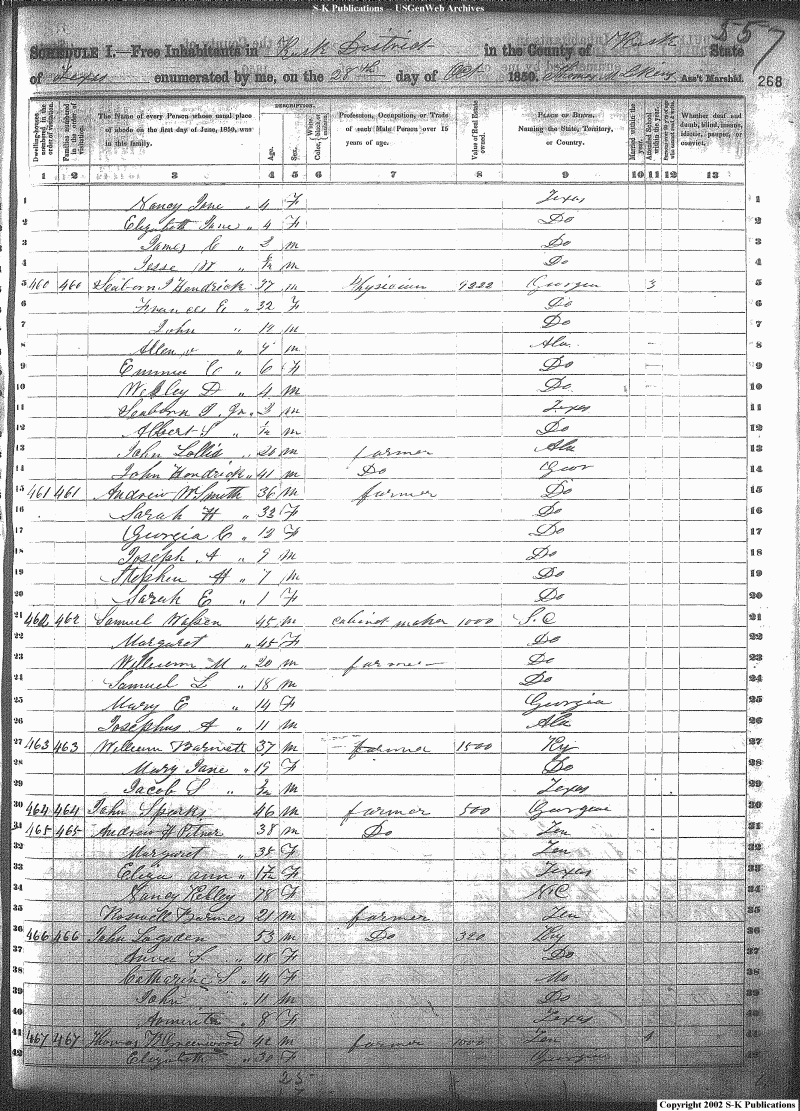 S-K Publications -- USGenWeb Archives
557
SCHEDULE I.—Free Inhabitants in Rusk District in the County of Rusk State
of Texas enumerated by me, on the 28th day of Oct 1850. Ass't Marshal. 268
Dwelling-houses numbered in the order of visitation.
Families numbered in the order of visitation.
The Name of every Person whose usual place of abode on the first day of June, 1850, was in this family.
DESCRIPTION.
Age.
Sex.
Color, White, black, or mulatto.
Profession, Occupation, or Trade of each Male Person over 15 years of age.
Value of Real Estate owned.
PLACE OF BIRTH. Naming the State, Territory, or Country.
Married within the year.
Attended School within the year.
Whether deaf and dumb, blind, insane, idiotic, pauper, or convict.
1 2 3 4 5 6 7 8 9 10 11 12 13
1 Nancy Jane " 4 F Texas 1
2 Elizabeth Jane " 4 F Do 2
3 James C " 3 m Do 3
4 Jesse W " m Do 4
5 460 460 Seaborn J Hendrick 37 m Physician Georgia 3 5
6 Frances E " 32 F Do 6
7 John " m Do 7
8 Allen " m Ala 8
9 Emma C " 6 F Do 9
10 Wesley D " 4 m Do 10
11 Seaborn J. Jr " 3 m Texas 11
12 Albert S " m Do 12
13 John Loftis 20 m farmer Ala 13
14 John Hendrick " 41 m Do Geor 14
15 461 461 Andrew W Smith 36 m farmer Do 15
16 Sarah H " 33 F Do 16
17 Georgia C " 12 F Do 17
18 Joseph A " 9 m Do 18
19 Stephen H " 7 m Do 19
20 Sarah E " 1 F Do 20
21 462 462 Samuel Watson 45 m cabinet maker 1000 S.C 21
22 Margaret " 45 F Do 22
23 William M " 20 m farmer Do 23
24 Samuel L " 18 m Do 24
25 Mary E " 14 F Georgia 25
26 Josephus A " 11 m Ala 26
27 463 463 William Barnett 37 m farmer 1500 Ky 27
28 Mary Jane " 19 F Do 28
29 Jacob S " m Texas 29
30 464 464 John Sparks 46 m farmer 500 Georgia 30
31 465 465 Andrew H Pitner 38 m Do Ten 31
32 Margaret " 35 F Ten 32
33 Eliza ann " F Texas 33
34 Nancy 78 F N.C 34
35 Roswell Barnes 21 m farmer Ten 35
36 466 466 John Logsden 53 m Do 320 Ky 36
37 " 48 F Do 37
38 Catharine S " 14 F Mo 38
39 John " 11 m Do 39
40 Armenta " 8 F Texas 40
41 467 467 Thomas Greenwood 42 m farmer 1000 Ten 41
42 Elizabeth " 30 F Georgia 42
25
Copyright 2002 S-K Publications